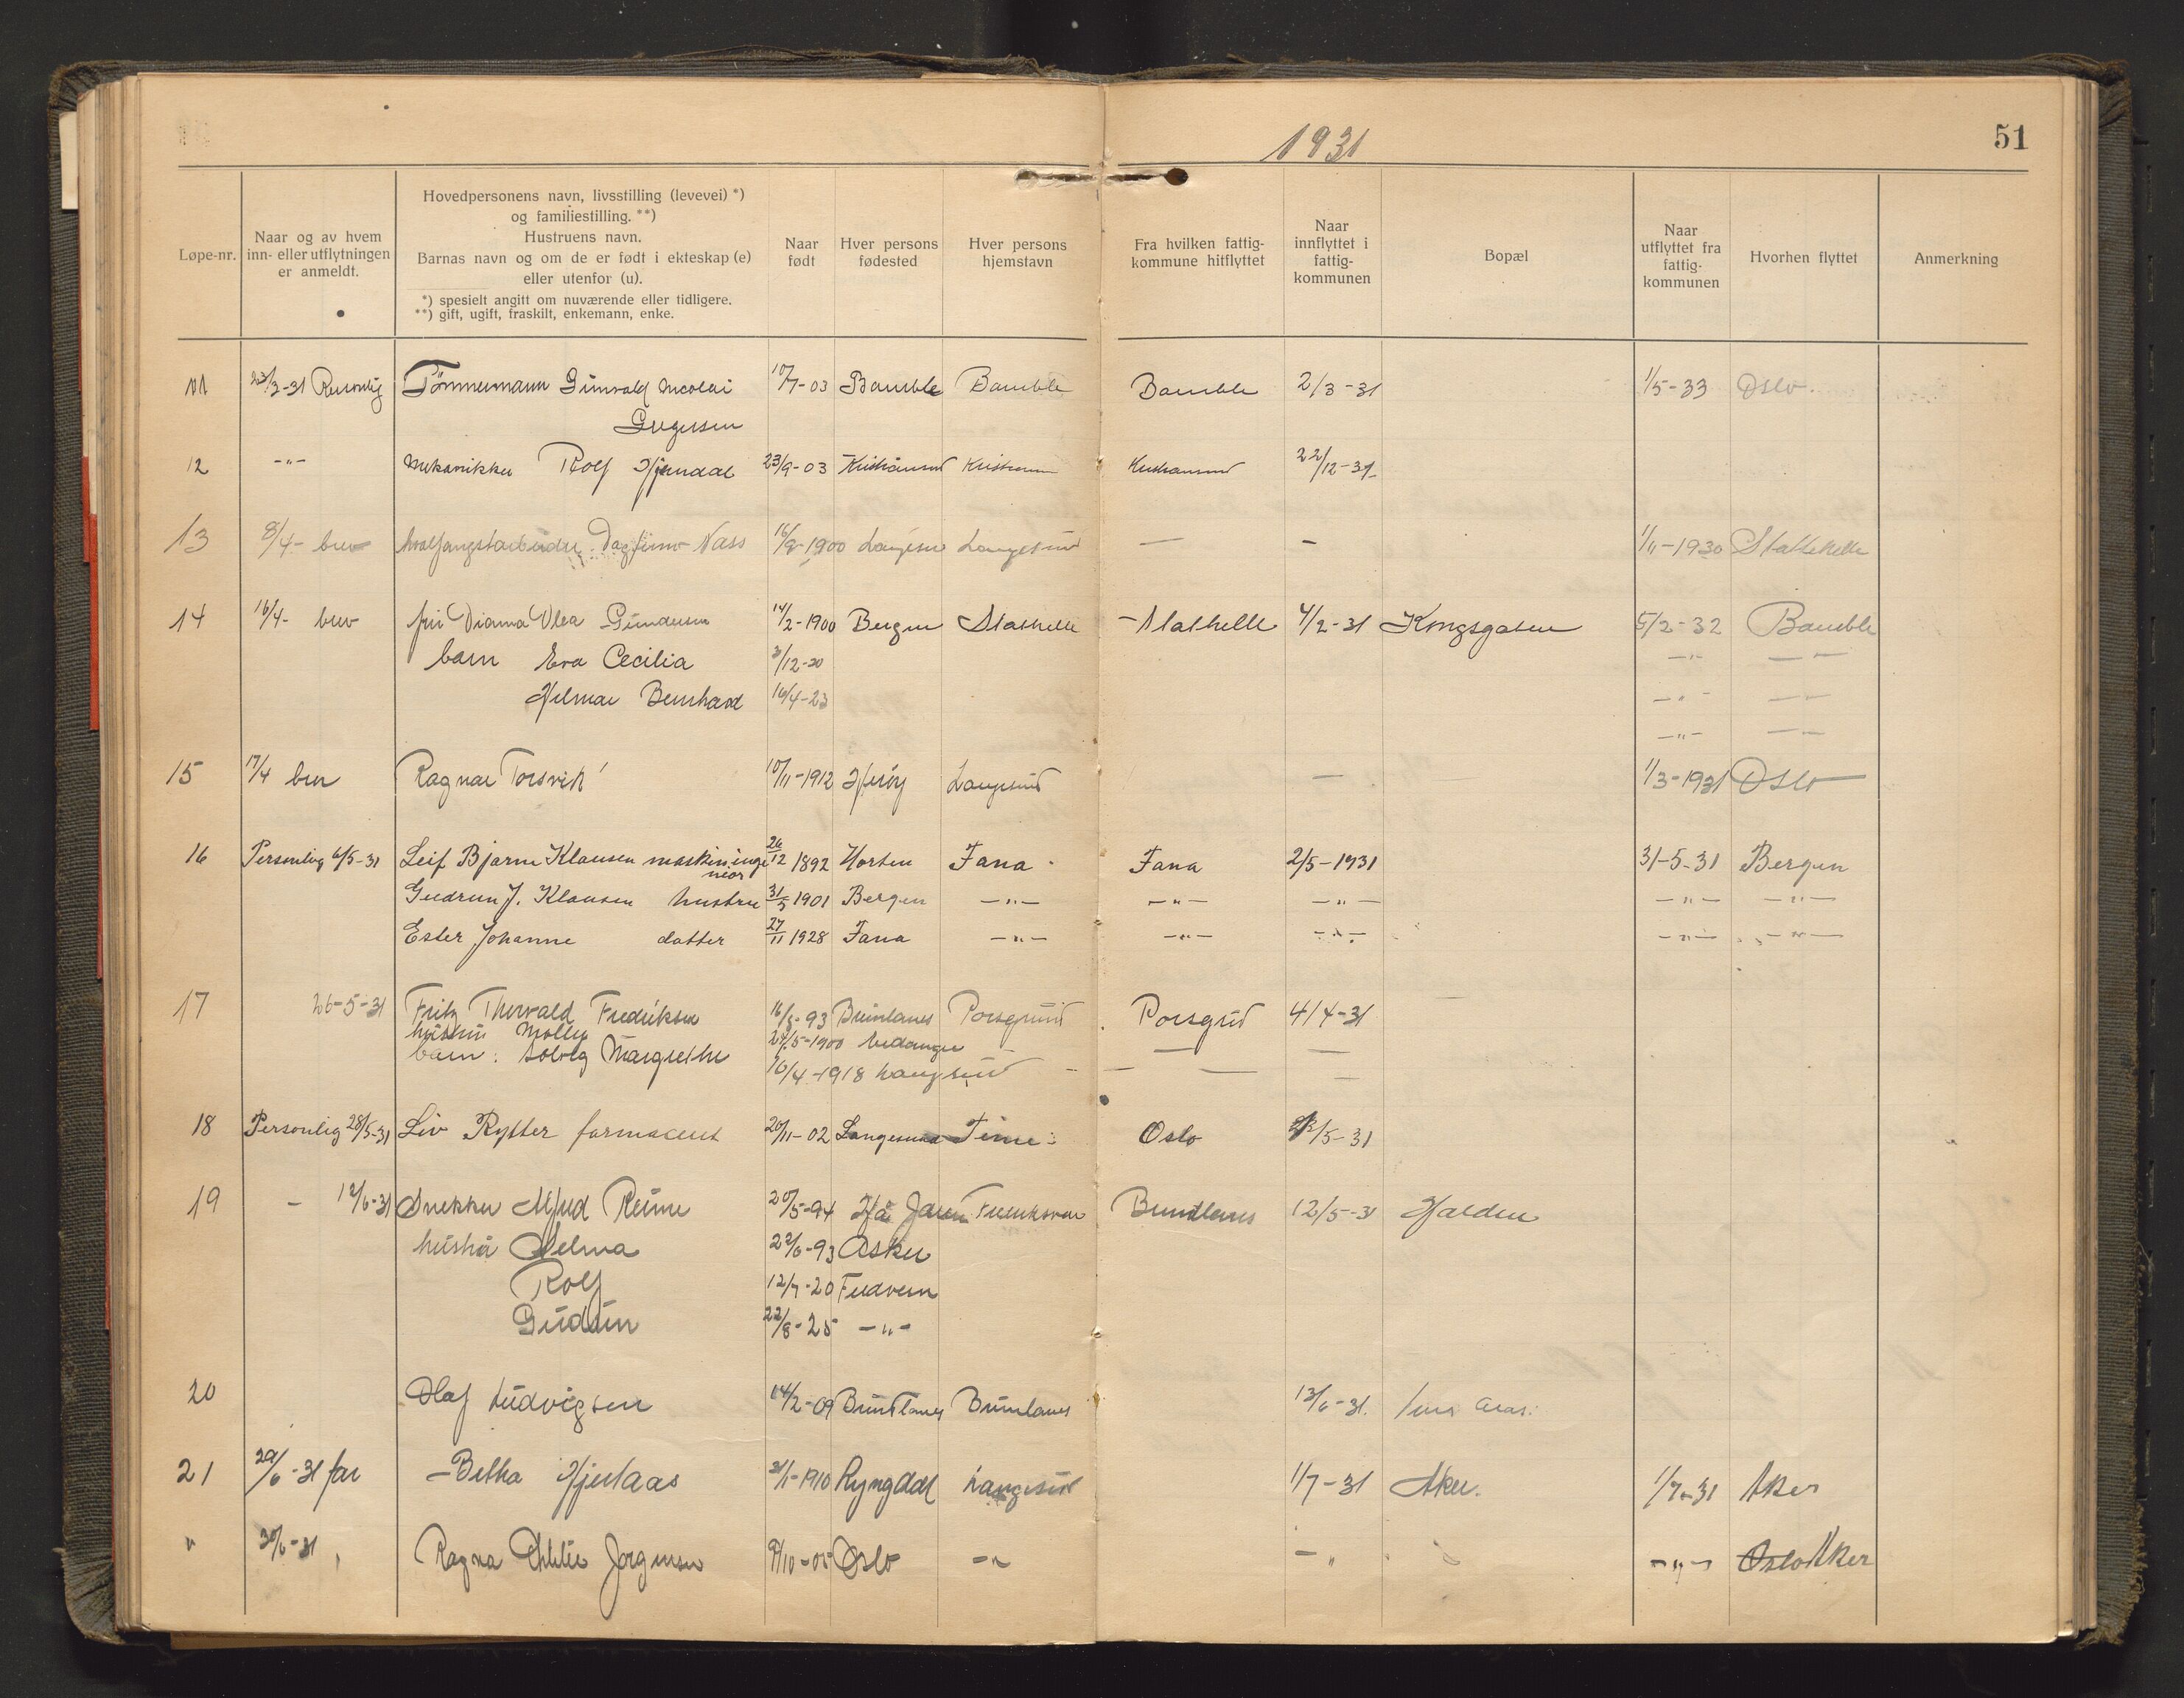 1931
51
Løpe-nr.
Naar og av hvem
inn- eller utflytningen
er anmeldt.
Hovedpersonens navn, livsstilling (levevei) *)
og familiestilling. **)
Hustruens navn.
Barnas navn og om de er født i ekteskap (e)
eller utenfor (u).
*) spesielt angitt om nuværende eller tidligere.
**) gift, ugift, fraskilt, enkemann, enke.
Naar
født
Hver persons
fødested
Hver persons
hjemstavn
Fra hvilken fattig-
kommune hitflyttet
Naar
innflyttet i
fattig-
kommunen
Bopæl
Naar
utflyttet fra
fattig-
kommunen
Hvorhen flyttet
Anmerkning
11 23/3-31 Personlig Tömmermann Gunvald Nicolai 10/7-03 Bamble Bamble Bamble 2/3-31 1/5-33 Oslo
Gregersen
12 -"- Mekanikker Rolf 23/9-03 Kristiansund Kristiansund 22/12-31
13 8/4- brev hvalfangstarbeider Dagfinn Næss 16/8-1900 Langesund Langesund — - 1/11-1930 Stathelle
14 16/4- brev fru Gundersen 14/2-1900 Bergen Stathelle Stathelle 4/2-31 Kongsgaten 5/2-32 Bamble
barn Eva Cecilia 3/12-20 -"- —
Hilmar Bernhard 16/4-23 -"- —
-"- —
15 17/4 brev Ragnar Torsvik 10/11-1912 Herøy Langesund — 1/3-1931 Oslo
16 Personlig 6/5-31 Leif Bjarne Klausen maskininge 26/12 1892 Horten Fana Fana 2/5-1931 31-5-31 Bergen
niør
Gudrun J. Klausen hustru 31/5 1901 Bergen -"- -"- -"- -"- -"-
Ester Johanne datter 27/11 1928 Fana -"- -"- -"- -"- -"-
17 26-5-31 Fritz Thorvald Fredriksen 16/8-93 Brunlanes Porsgrund Porsgrd 4/4-31
hustru Molly 29/5-1900 — —
barn: Solveig Margrethe 16/4-1918 Langesund - — —
18 Personlig 28/5-31 Liv Rytter farmaceut 20/11-02 Langesund Time Oslo /5-31
19 - 12/6-31 Snekker Alfred Reime 20/5-94 Hå Jæren Fredriksvern Brunlanes 12/5-31 Halden
hustru Selma 22/6-93 Asker
Rolf 12/7-20 Fredvern
Gudrun 22/8-25 -"-
20 Olaf Ludvigsen 14/2-09 Brunlanes Brunlanes 13/6-31
21 29/6-31 far Betha 21/1-1910 Lyngdal Langesund 1/7-31 Aker. 1/7-31 Aker
" 30/6-31 Ragna Jørgensen 9/10-05 Oslo -"- -"- -"- Oslo Aker